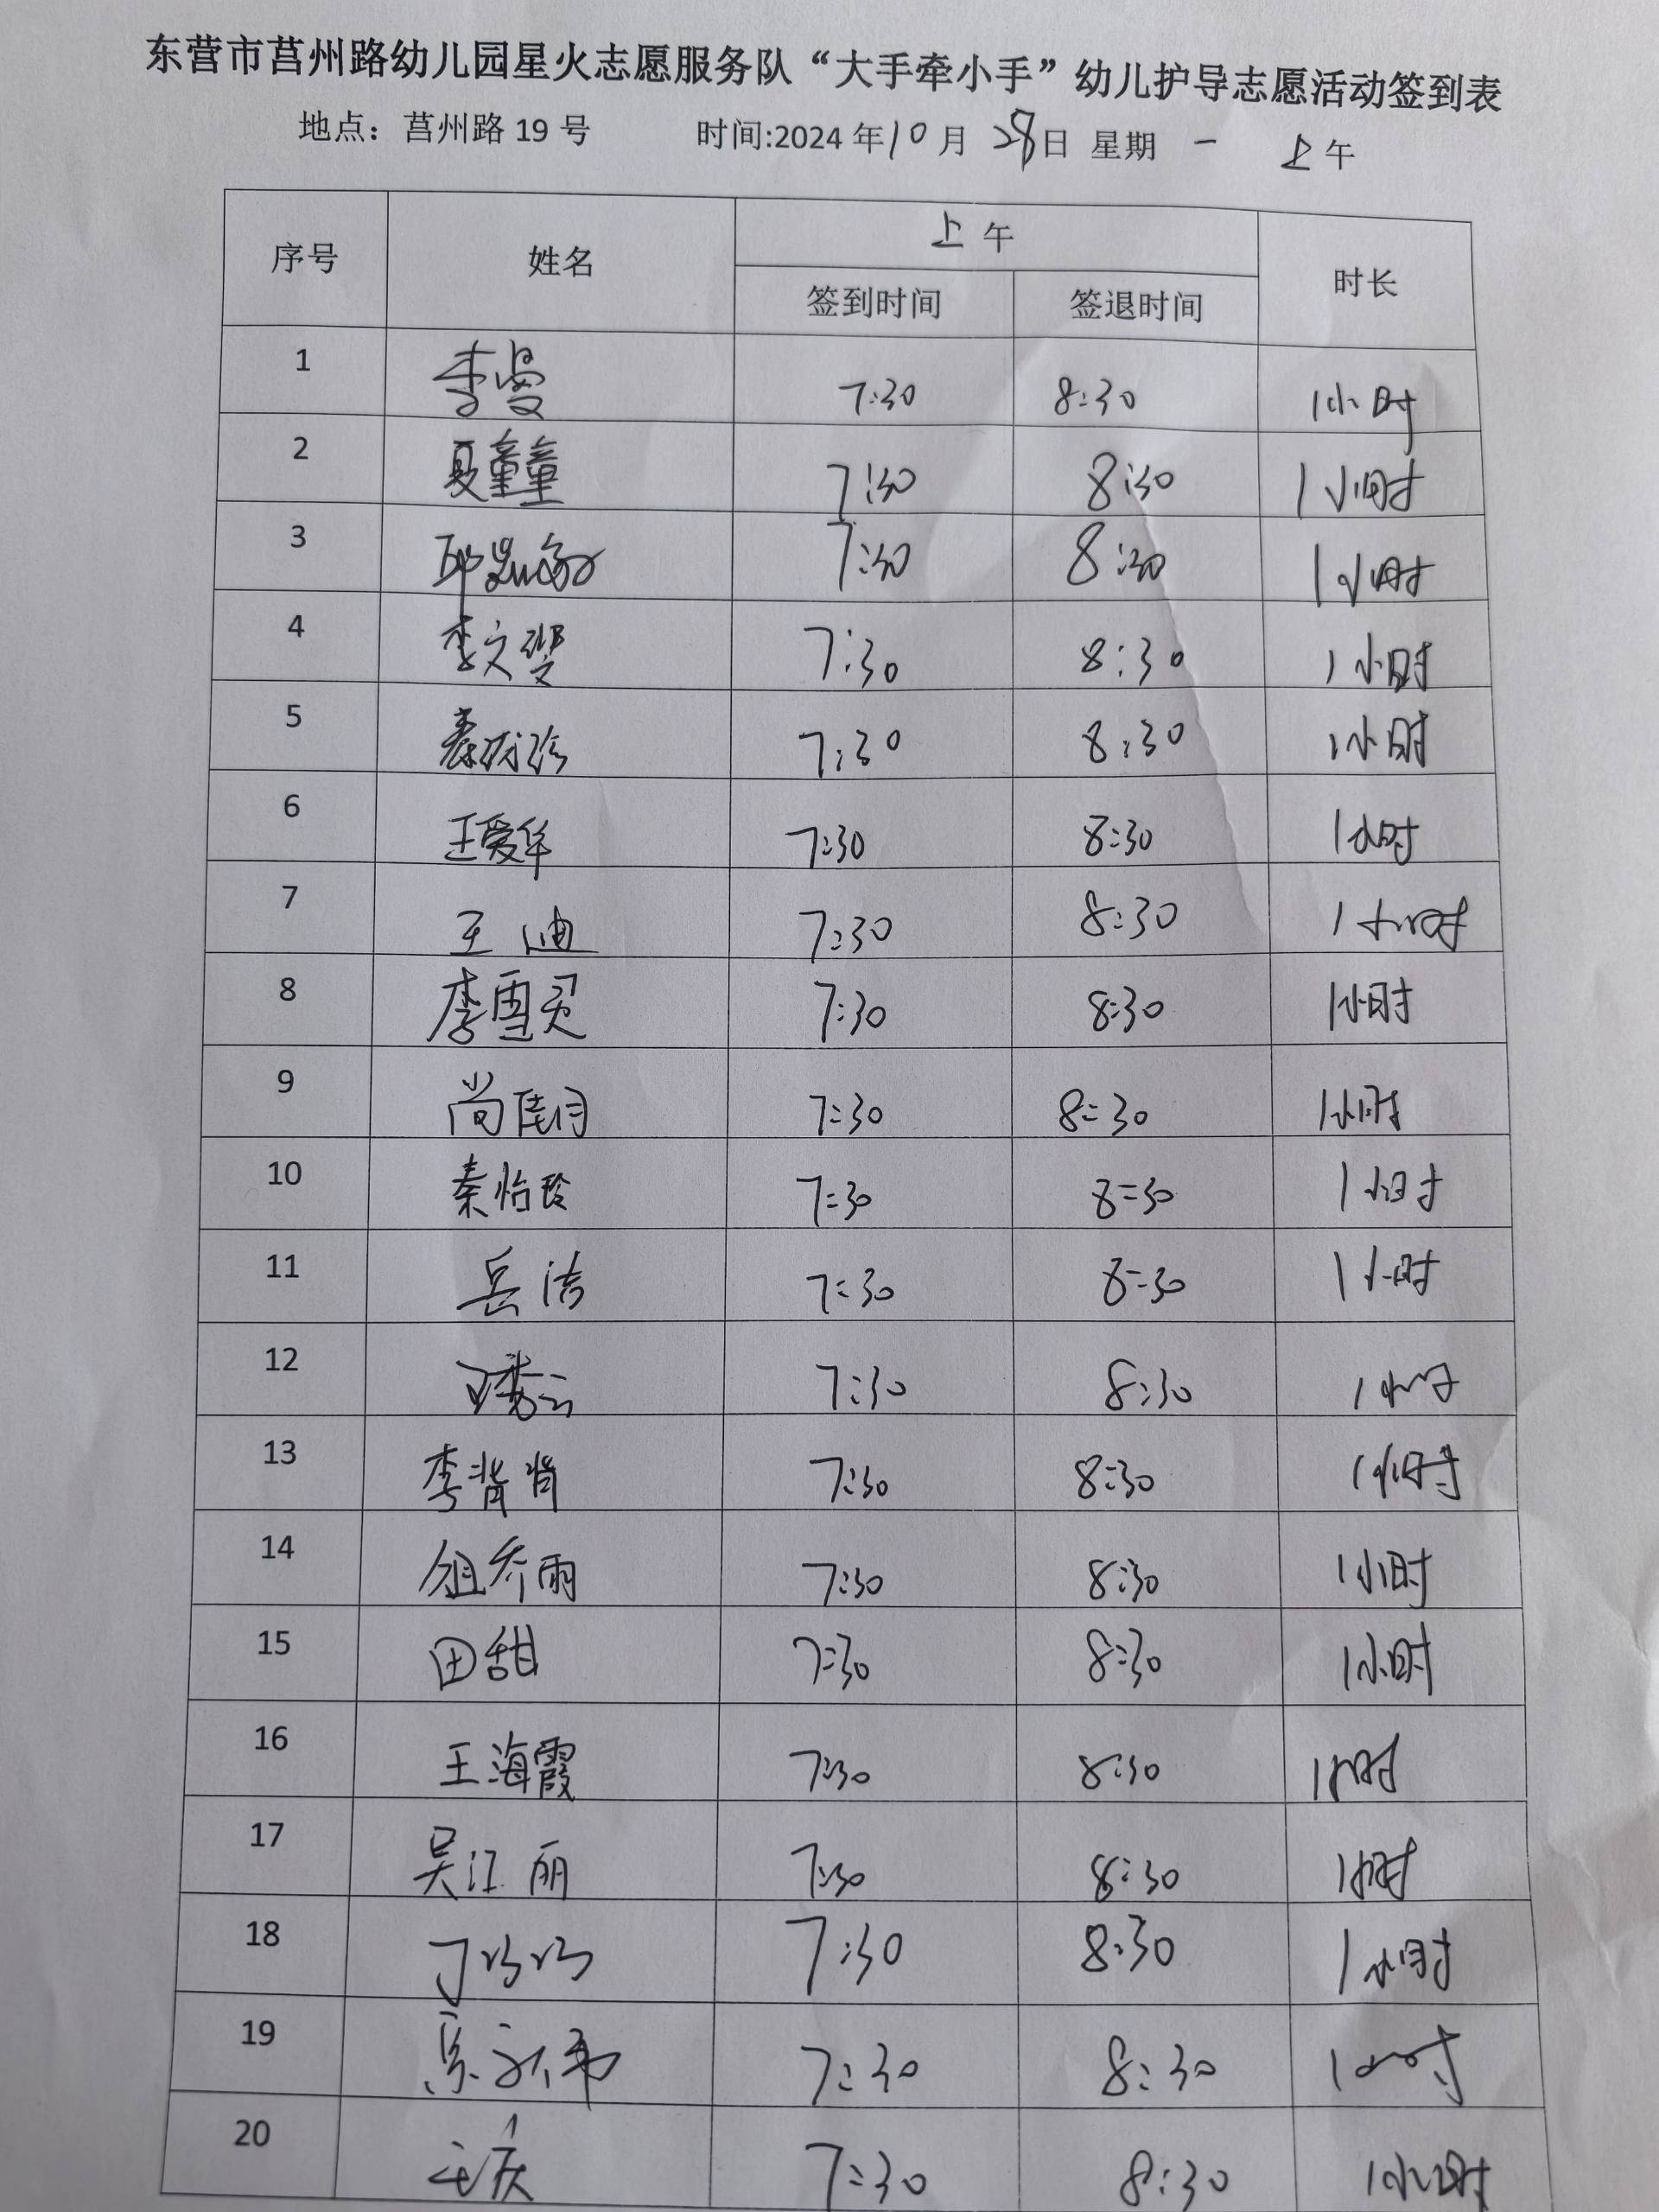 东营市莒州路幼儿园星火志愿服务队“大手牵小手”幼儿护导志愿活动签到表
地点：莒州路 19 号 时间:2024 年10月 28日 星期 一 上午
序号 姓名 上午 时长
签到时间 签退时间
1 李曼 7:30 8:30 1小时
2 夏童童 7:30 8:30 1小时
3 7:30 8:30 1小时
4 李文翠 7:30 8:30 1小时
5 7:30 8:30 1小时
6 王爱华 7:30 8:30 1小时
7 王迪 7:30 8:30 1小时
8 李雪灵 7:30 8:30 1小时
9 尚佳月 7:30 8:30 1小时
10 秦怡玲 7:30 8:30 1小时
11 岳洁 7:30 8:30 1小时
12 7:30 8:30 1小时
13 李背背 7:30 8:30 1小时
14 7:30 8:30 1小时
15 田甜 7:30 8:30 1小时
16 王海霞 7:30 8:30 1小时
17 吴江丽 7:30 8:30 1小时
18 7:30 8:30 1小时
19 7:30 8:30 1小时
20 7:30 8:30 1小时